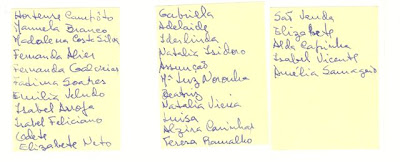 Hortense Campôto
Manuela Branco
Madalena Costa Silva
Fernanda Alier
Fernanda
Fátima Soares
Emília Veludo
Isabel
Isabel Feliciano
Odete
Elizabete Neto
Gabriella
Adelaide
Iderlinda
Natália Isidoro
Assunção
Mª Luz Noronha
Beatriz
Natália Vieira
Luisa
Alzira Caninhas
Teresa Ramalho
São Venda
Elizabete
Alda Capinha
Isabel Vicente
Amélia